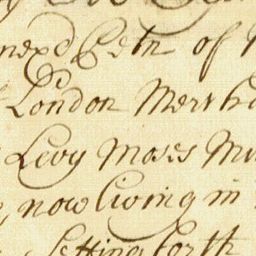 nex'd Petn of
London Mercha
Levy Moses M
now living in
Setting forth